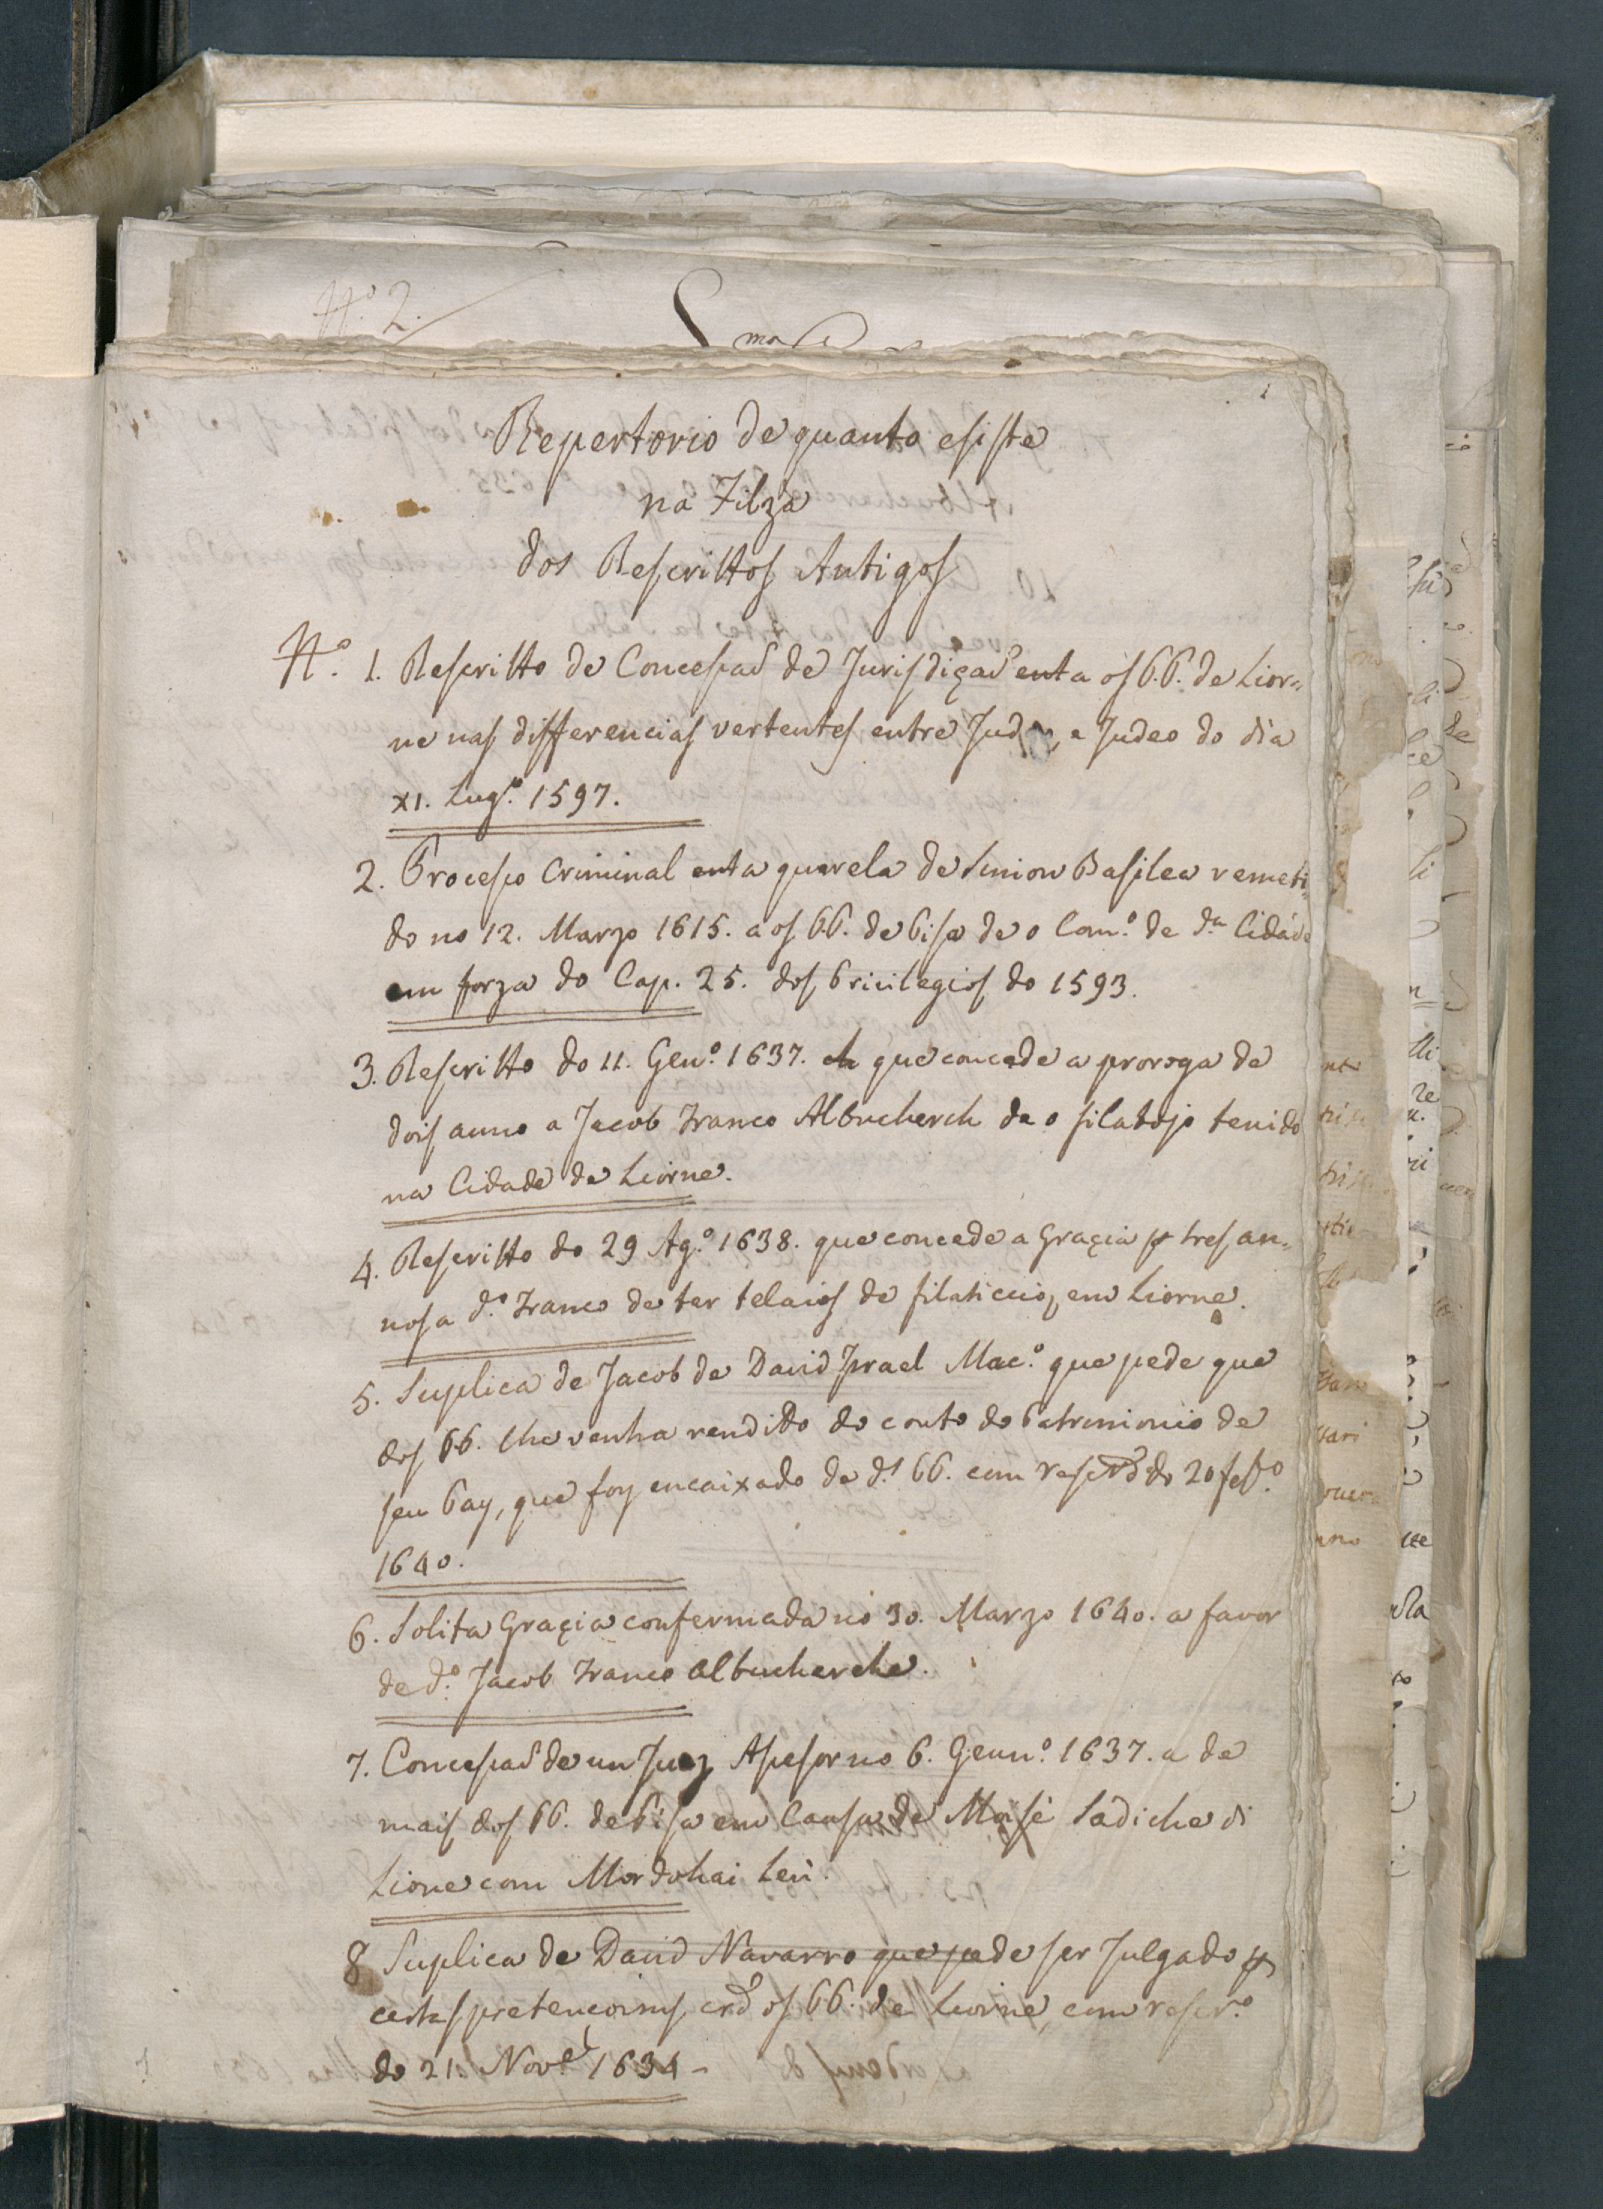 Nº 2.
Repertorio de quanto esiste
na Filza
dos Rescrittos Antigos
Nº. 1. Rescritto de Concessaõ de Jurisdiçaõ enta os PP. de Lior=
ne nas differencias vertentes entre Judeo, e Judeo do dia
XI. Lugº. 1597.
2. Processo Criminal enta querela de Simion Basilea remeti=
do no 12. Marzo 1615. a os PP. de Pisa de o Comº. de dª Cidade
em forza do Cap. 25. dos Privilegios do 1593.
3. Rescritto do 11. Genº. 1637. que concede a proroga de
dois anno a Jacob Franco Albucherch de o filatojo tenido
na Cidade de Liorne.
4. Rescritto do 29 Agº. 1638. que concede a Graçia p tres an=
nos a dº. Franco de ter telaios de filaticcio, em Liorne.
5. Suplica de Jacob de David Israel Macº. que pede que
dos PP. lhe venha rendido do conto do Patrimonio de
seu Pay, que foy encaixado de dˢ PP. com do 20
1640.
6. Solita Graçia confermada no 30. Marzo 1640. a favor
de dº. Jacob Franco Albucherche.
7. Concessaõ de un Juez Assessor no 6. Gennº. 1637. a de
mais dos PP. de Pisa em Causa de Moisé Sadiche di
Liorne com Mordohai Levi.
8 Suplica de David Navarro que pede ser Julgado p
certas pretencoims, os PP. de Liorne, com rescrº.
do 21. Novᵉ 1634 -